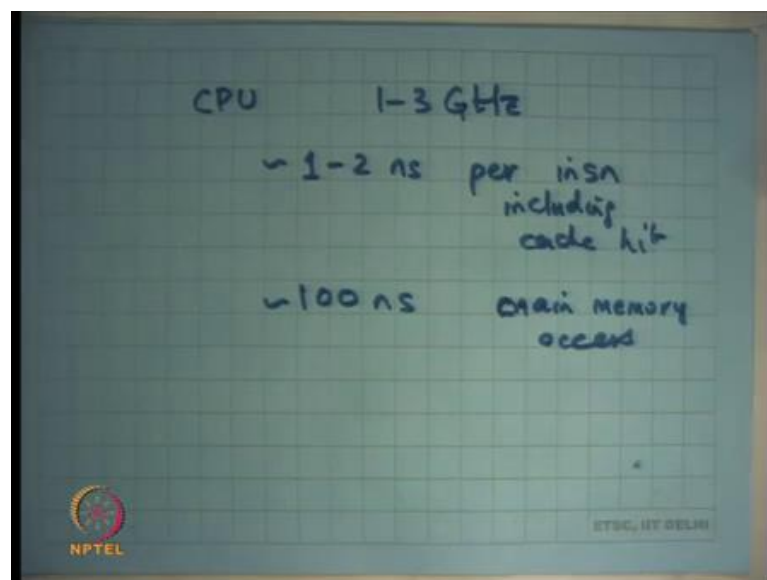 CPU 1-3 GHz
~ 1-2 ns per insn
including
cache hit
~100 ns main memory
access
ETSC, IIT DELHI
NPTEL